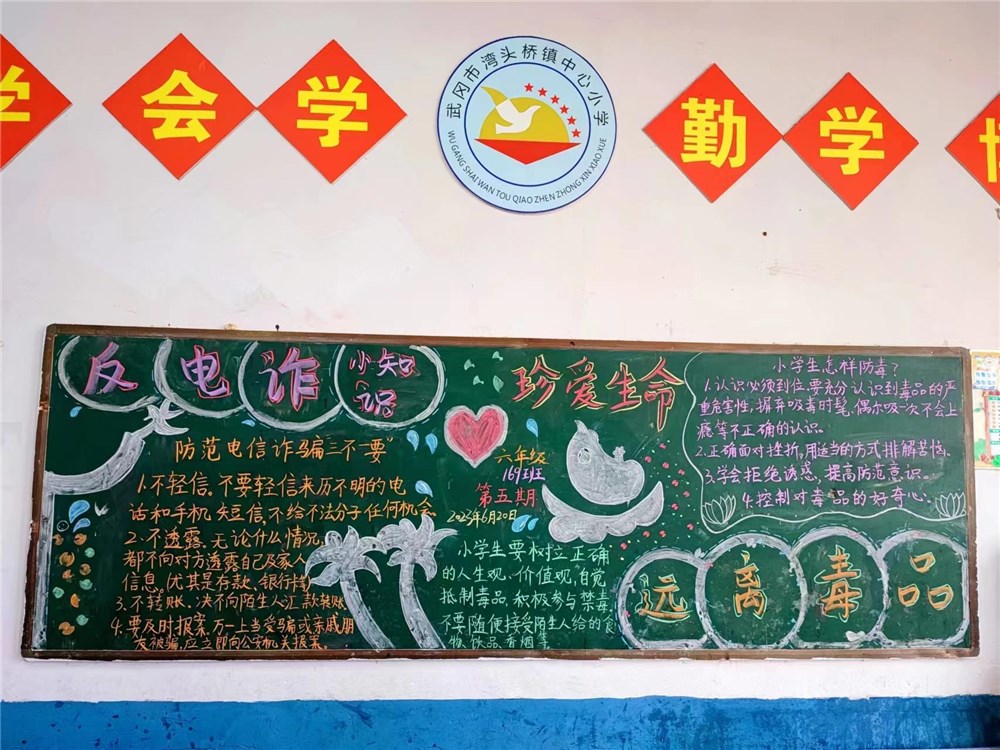 学
会
学
武冈市湾头桥镇中心小学
WU GANG SHAI WAN TOU QIAO ZHEN ZHONG XIN XIAO XUE
勤
学
反电诈小知识
防范电信诈骗"三不一要"
1.不轻信。不要轻信来历不明的电
话和手机短信,不给不法分子任何机会
2.不透露,无论什么情况,
都不向对方透露自己及家人
信息。(尤其是存款、银行卡)
3.不转账、决不向陌生人汇款转账
4.要及时报案,万一上当受骗或亲戚朋
友被骗,应立即向公安机关报案。
珍爱生命
六年级
169班
第五期
2023年6月20日
小学生要树立正确
的人生观、价值观,自觉
抵制毒品,积极参与禁毒,
不要随便接受陌生人给的食
物、饮品、香烟等。
小学生怎样防毒?
1.认识必须到位,要充分认识到毒品的严
重危害性,摒弃吸毒时髦,偶尔吸一次不会上
瘾等不正确的认识.
2.正确面对挫折,用适当的方式排解苦恼.
3.学会拒绝诱惑,提高防范意识.
4.控制对毒品的好奇心.
远离毒品